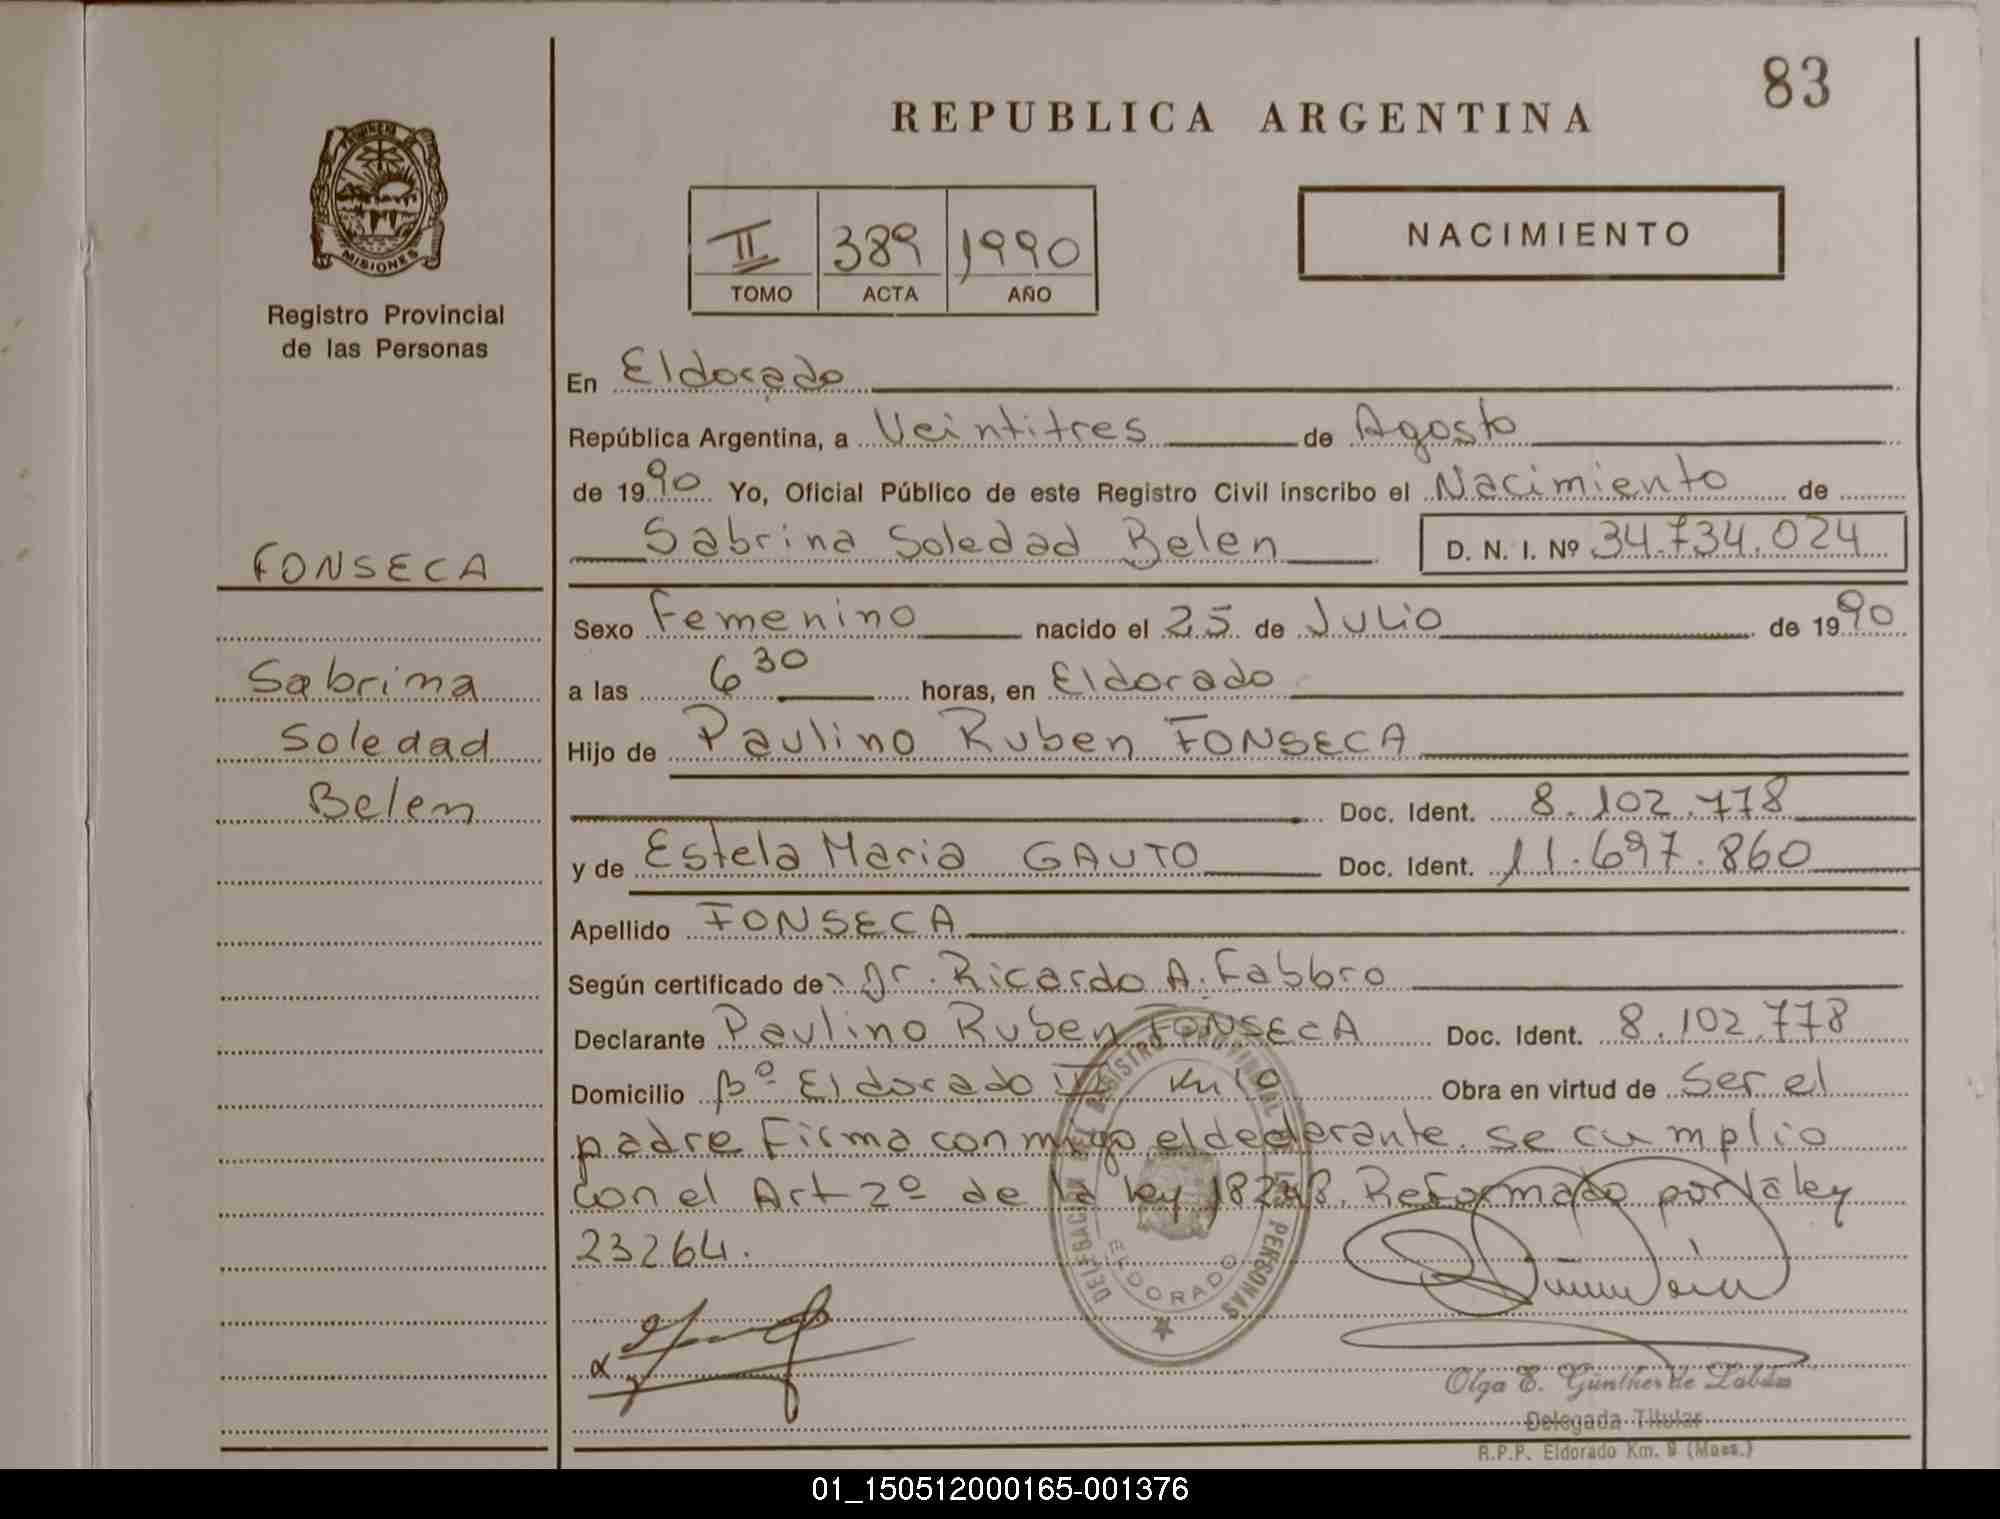 83
REPUBLICA ARGENTINA
PROVINCIA
MISIONES
Registro Provincial
de las Personas
II 389 1990
TOMO ACTA AÑO
NACIMIENTO
En Eldorado
República Argentina, a Veintitres de Agosto
de 1990 Yo, Oficial Público de este Registro Civil inscribo el Nacimiento de
Sabrina Soledad Belen D. N. I. Nº 34.734.024
FONSECA
Sabrina
Soledad
Belen
Sexo Femenino nacido el 25 de Julio de 1990
a las 6 30 horas, en Eldorado
Hijo de Paulino Ruben FONSECA
Doc. Ident. 8.102.778
y de Estela Maria GAUTO Doc. Ident. 11.697.860
Apellido FONSECA
Según certificado de Dr. Ricardo A. Fabbro
Declarante Paulino Ruben FONSECA Doc. Ident. 8.102.778
Domicilio Bº Eldorado II Km 9 Obra en virtud de Ser el
padre Firma conmigo el declarante. se cumplio
con el Art 2º de la ley 18248. Reformado por la ley
23264.
DELEGACION DEL REGISTRO PROVINCIAL DE LAS PERSONAS
ELDORADO
Olga E. Günther de
Delegada Titular
R.P.P. Eldorado Km. 9 (Mnes.)
01_150512000165-001376